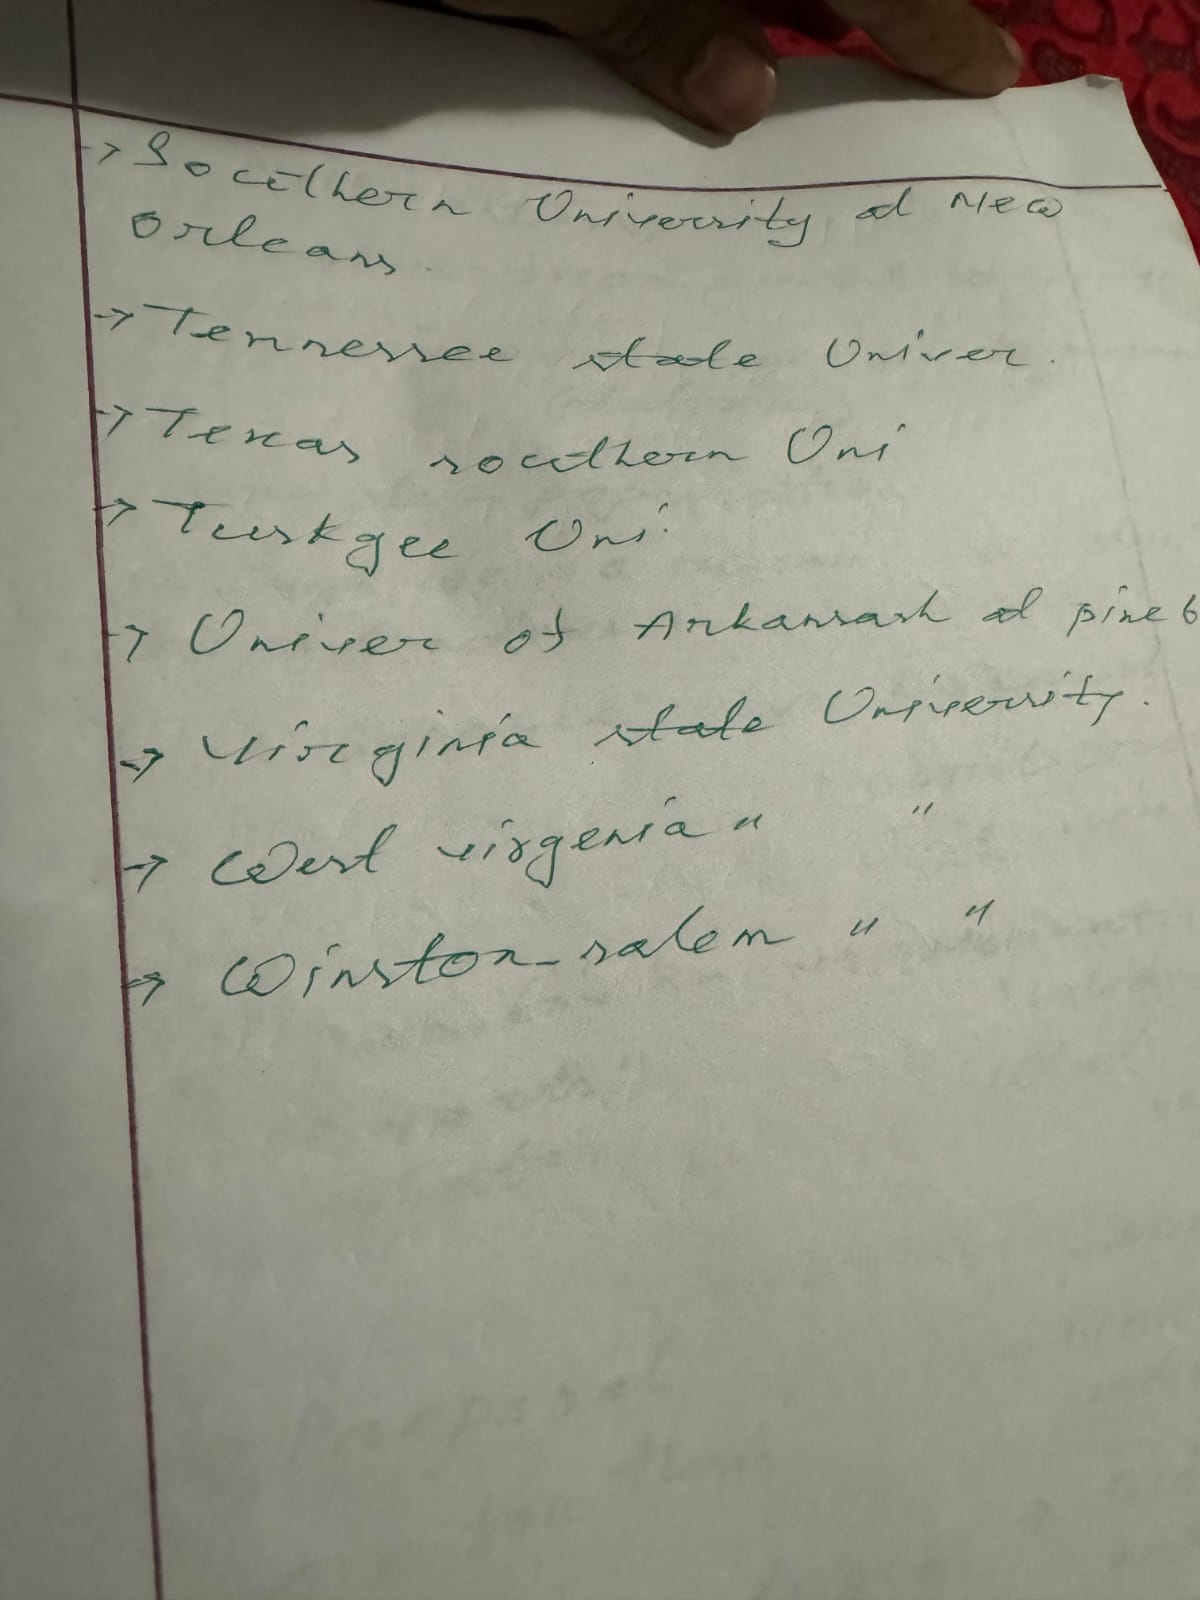 → Southern University at New
Orleans.
→ Tennessee state Univer.
→ Texas southern Uni
→ Tuskgee Uni.
→ Univer of Arkansash at pine b
→ Virginia state University.
→ West virgenia " "
→ Winston-salem " "